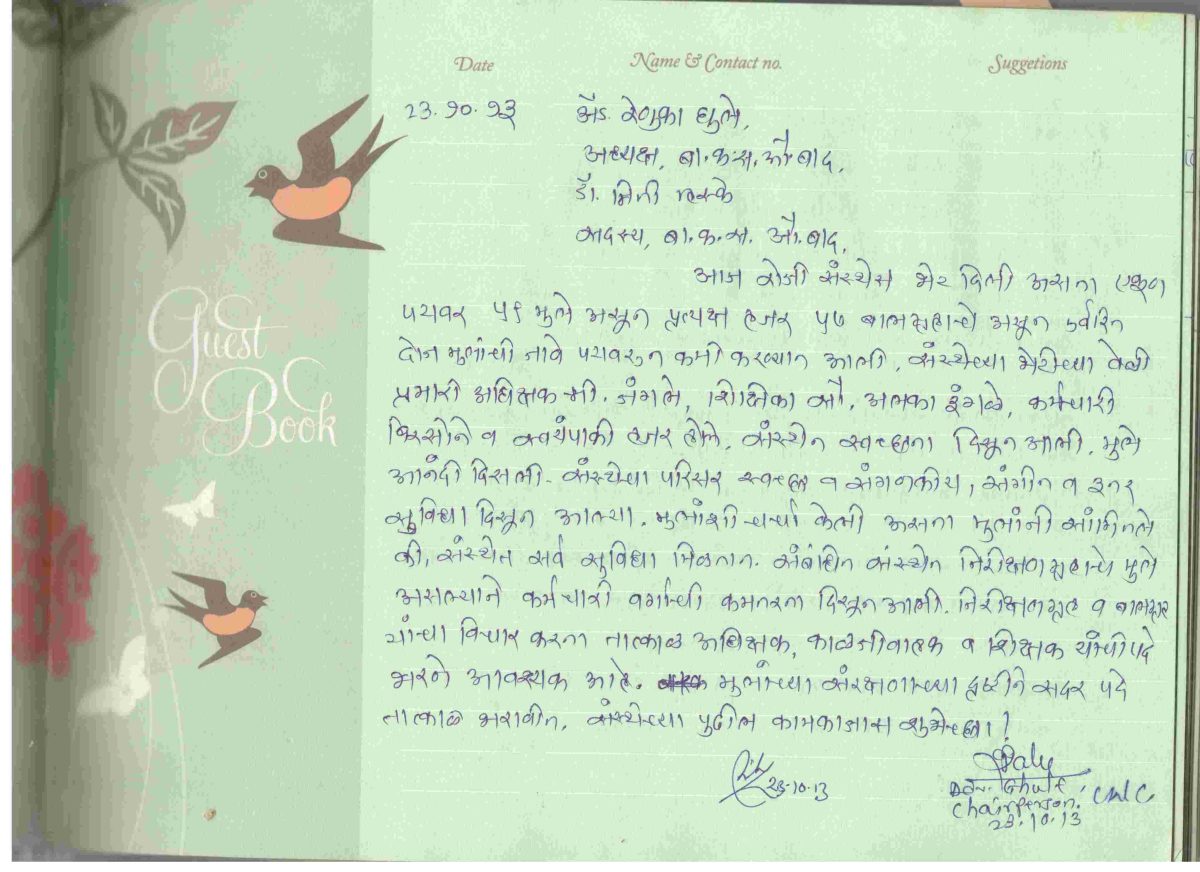 Date Name & Contact no. Suggetions
२३.१०.१३ अॅड. रेणुका घुले,
अध्यक्ष, बा.क.स. औ.बाद,
डॉ. मिनी
सदस्य, बा.क.स. औ.बाद,
आज रोजी संस्थेस भेट दिली असता एकूण
पटावर ५९ मुले असून प्रत्यक्ष हजर ५७ बालगृहाचे असून उर्वरित
दोन मुलांची नावे पटावरुन कमी करण्यात आली. संस्थेच्या भेटीच्या वेळी
प्रभारी अधिक्षक श्री. जंगले, शिक्षिका सौ. अलका इंगळे, कर्मचारी
व स्वयंपाकी हजर होते. संस्थेत स्वच्छता दिसून आली. मुले
आनंदी दिसली. संस्थेचा परिसर स्वच्छ व संगणकीय, संगीत व इतर
सुविधा दिसून आल्या. मुलांशी चर्चा केली असता मुलांनी सांगितले
की, संस्थेत सर्व सुविधा मिळतात. संबंधित संस्थेत निरीक्षणगृहाचे मुले
असल्याने कर्मचारी वर्गाची कमतरता दिसून आली. निरीक्षणगृह व बालगृह
यांचा विचार करता तात्काळ अधिक्षक, काळजीवाहक व शिक्षक यांची पदे
भरणे आवश्यक आहे. मुलांच्या संरक्षणाच्या दृष्टीने सदर पदे
तात्काळ भरावीत. संस्थेच्या पुढील कामकाजास शुभेच्छा!
Guest
Book
23-10-13
Adv. Ghule,
Chairperson, CWC
23.10.13